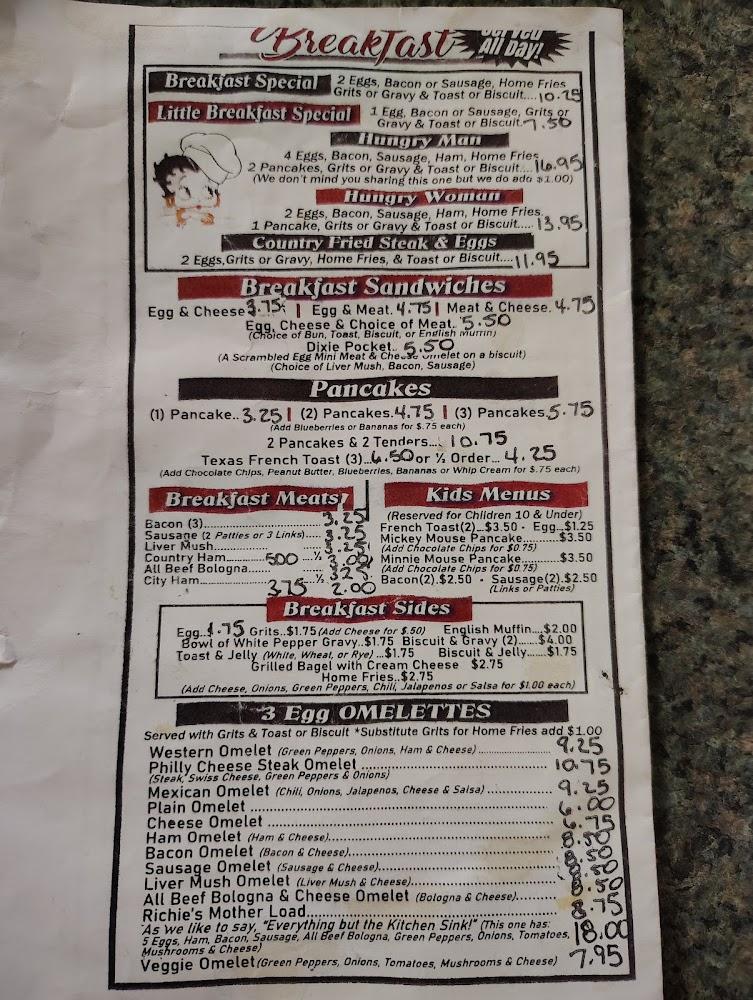 Breakfast Served All Day!
Breakfast Special 2 Eggs, Bacon or Sausage, Home Fries
Grits or Gravy & Toast or Biscuit....10.25
Little Breakfast Special 1 Egg, Bacon or Sausage, Grits or
Gravy & Toast or Biscuit.7.50
Hungry Man
4 Eggs, Bacon, Sausage, Ham, Home Fries
2 Pancakes, Grits or Gravy & Toast or Biscuit....16.95
(We don't mind you sharing this one but we do add $1.00)
Hungry Woman
2 Eggs, Bacon, Sausage, Ham, Home Fries.
1 Pancake, Grits or Gravy & Toast or Biscuit....13.95
Country Fried Steak & Eggs
2 Eggs,Grits or Gravy, Home Fries, & Toast or Biscuit....11.95
Breakfast Sandwiches
Egg & Cheese 3.75 | Egg & Meat. 4.75 | Meat & Cheese. 4.75
Egg, Cheese & Choice of Meat.. 5.50
(Choice of Bun, Toast, Biscuit, or English Muffin)
Dixie Pocket.. 5.50
(A Scrambled Egg Mini Meat & Cheese Omelet on a biscuit)
(Choice of Liver Mush, Bacon, Sausage)
Pancakes
(1) Pancake..3.25 | (2) Pancakes.4.75 | (3) Pancakes.5.75
(Add Blueberries or Bananas for $.75 each)
2 Pancakes & 2 Tenders... 10.75
Texas French Toast (3)...6.50 or ½ Order... 4.25
(Add Chocolate Chips, Peanut Butter, Blueberries, Bananas or Whip Cream for $.75 each)
Breakfast Meats
Bacon (3)........ 3.25
Sausage (2 Patties or 3 Links)..... 3.25
Liver Mush........ 3.25
Country Ham........500 ...½ 3.00
All Beef Bologna........
City Ham........ 3.75 ..½ 2.00
Kids Menus
(Reserved for Children 10 & Under)
French Toast(2)...$3.50 · Egg...$1.25
Mickey Mouse Pancake..........$3.50
(Add Chocolate Chips for $0.75)
Minnie Mouse Pancake..........$3.50
(Add Chocolate Chips for $0.75)
Bacon(2).$2.50 · Sausage(2).$2.50
(Links or Patties)
Breakfast Sides
Egg..1.75 Grits..$1.75 (Add Cheese for $.50) English Muffin....$2.00
Bowl of White Pepper Gravy..$1.75 Biscuit & Gravy (2)......$4.00
Toast & Jelly (White, Wheat, or Rye) ...$1.75 Biscuit & Jelly.......$1.75
Grilled Bagel with Cream Cheese $2.75
Home Fries..$2.75
(Add Cheese, Onions, Green Peppers, Chili, Jalapenos or Salsa for $1.00 each)
3 Egg OMELETTES
Served with Grits & Toast or Biscuit *Substitute Grits for Home Fries add $1.00
Western Omelet (Green Peppers, Onions, Ham & Cheese) .................. 9.25
Philly Cheese Steak Omelet .................. 10.75
(Steak, Swiss Cheese, Green Peppers & Onions)
Mexican Omelet (Chili, Onions, Jalapenos, Cheese & Salsa) .................. 9.25
Plain Omelet .................. 6.00
Cheese Omelet .................. 6.75
Ham Omelet (Ham & Cheese).................. 8.50
Bacon Omelet (Bacon & Cheese).................. 8.50
Sausage Omelet (Sausage & Cheese).................. 8.50
Liver Mush Omelet (Liver Mush & Cheese).................. 8.50
All Beef Bologna & Cheese Omelet (Bologna & Cheese).................. 8.75
Richie's Mother Load.................. 18.00
"As we like to say, "Everything but the Kitchen Sink!" (This one has:
5 Eggs, Ham, Bacon, Sausage, All Beef Bologna, Green Peppers, Onions, Tomatoes,
Mushrooms & Cheese)
Veggie Omelet (Green Peppers, Onions, Tomatoes, Mushrooms & Cheese) 7.95